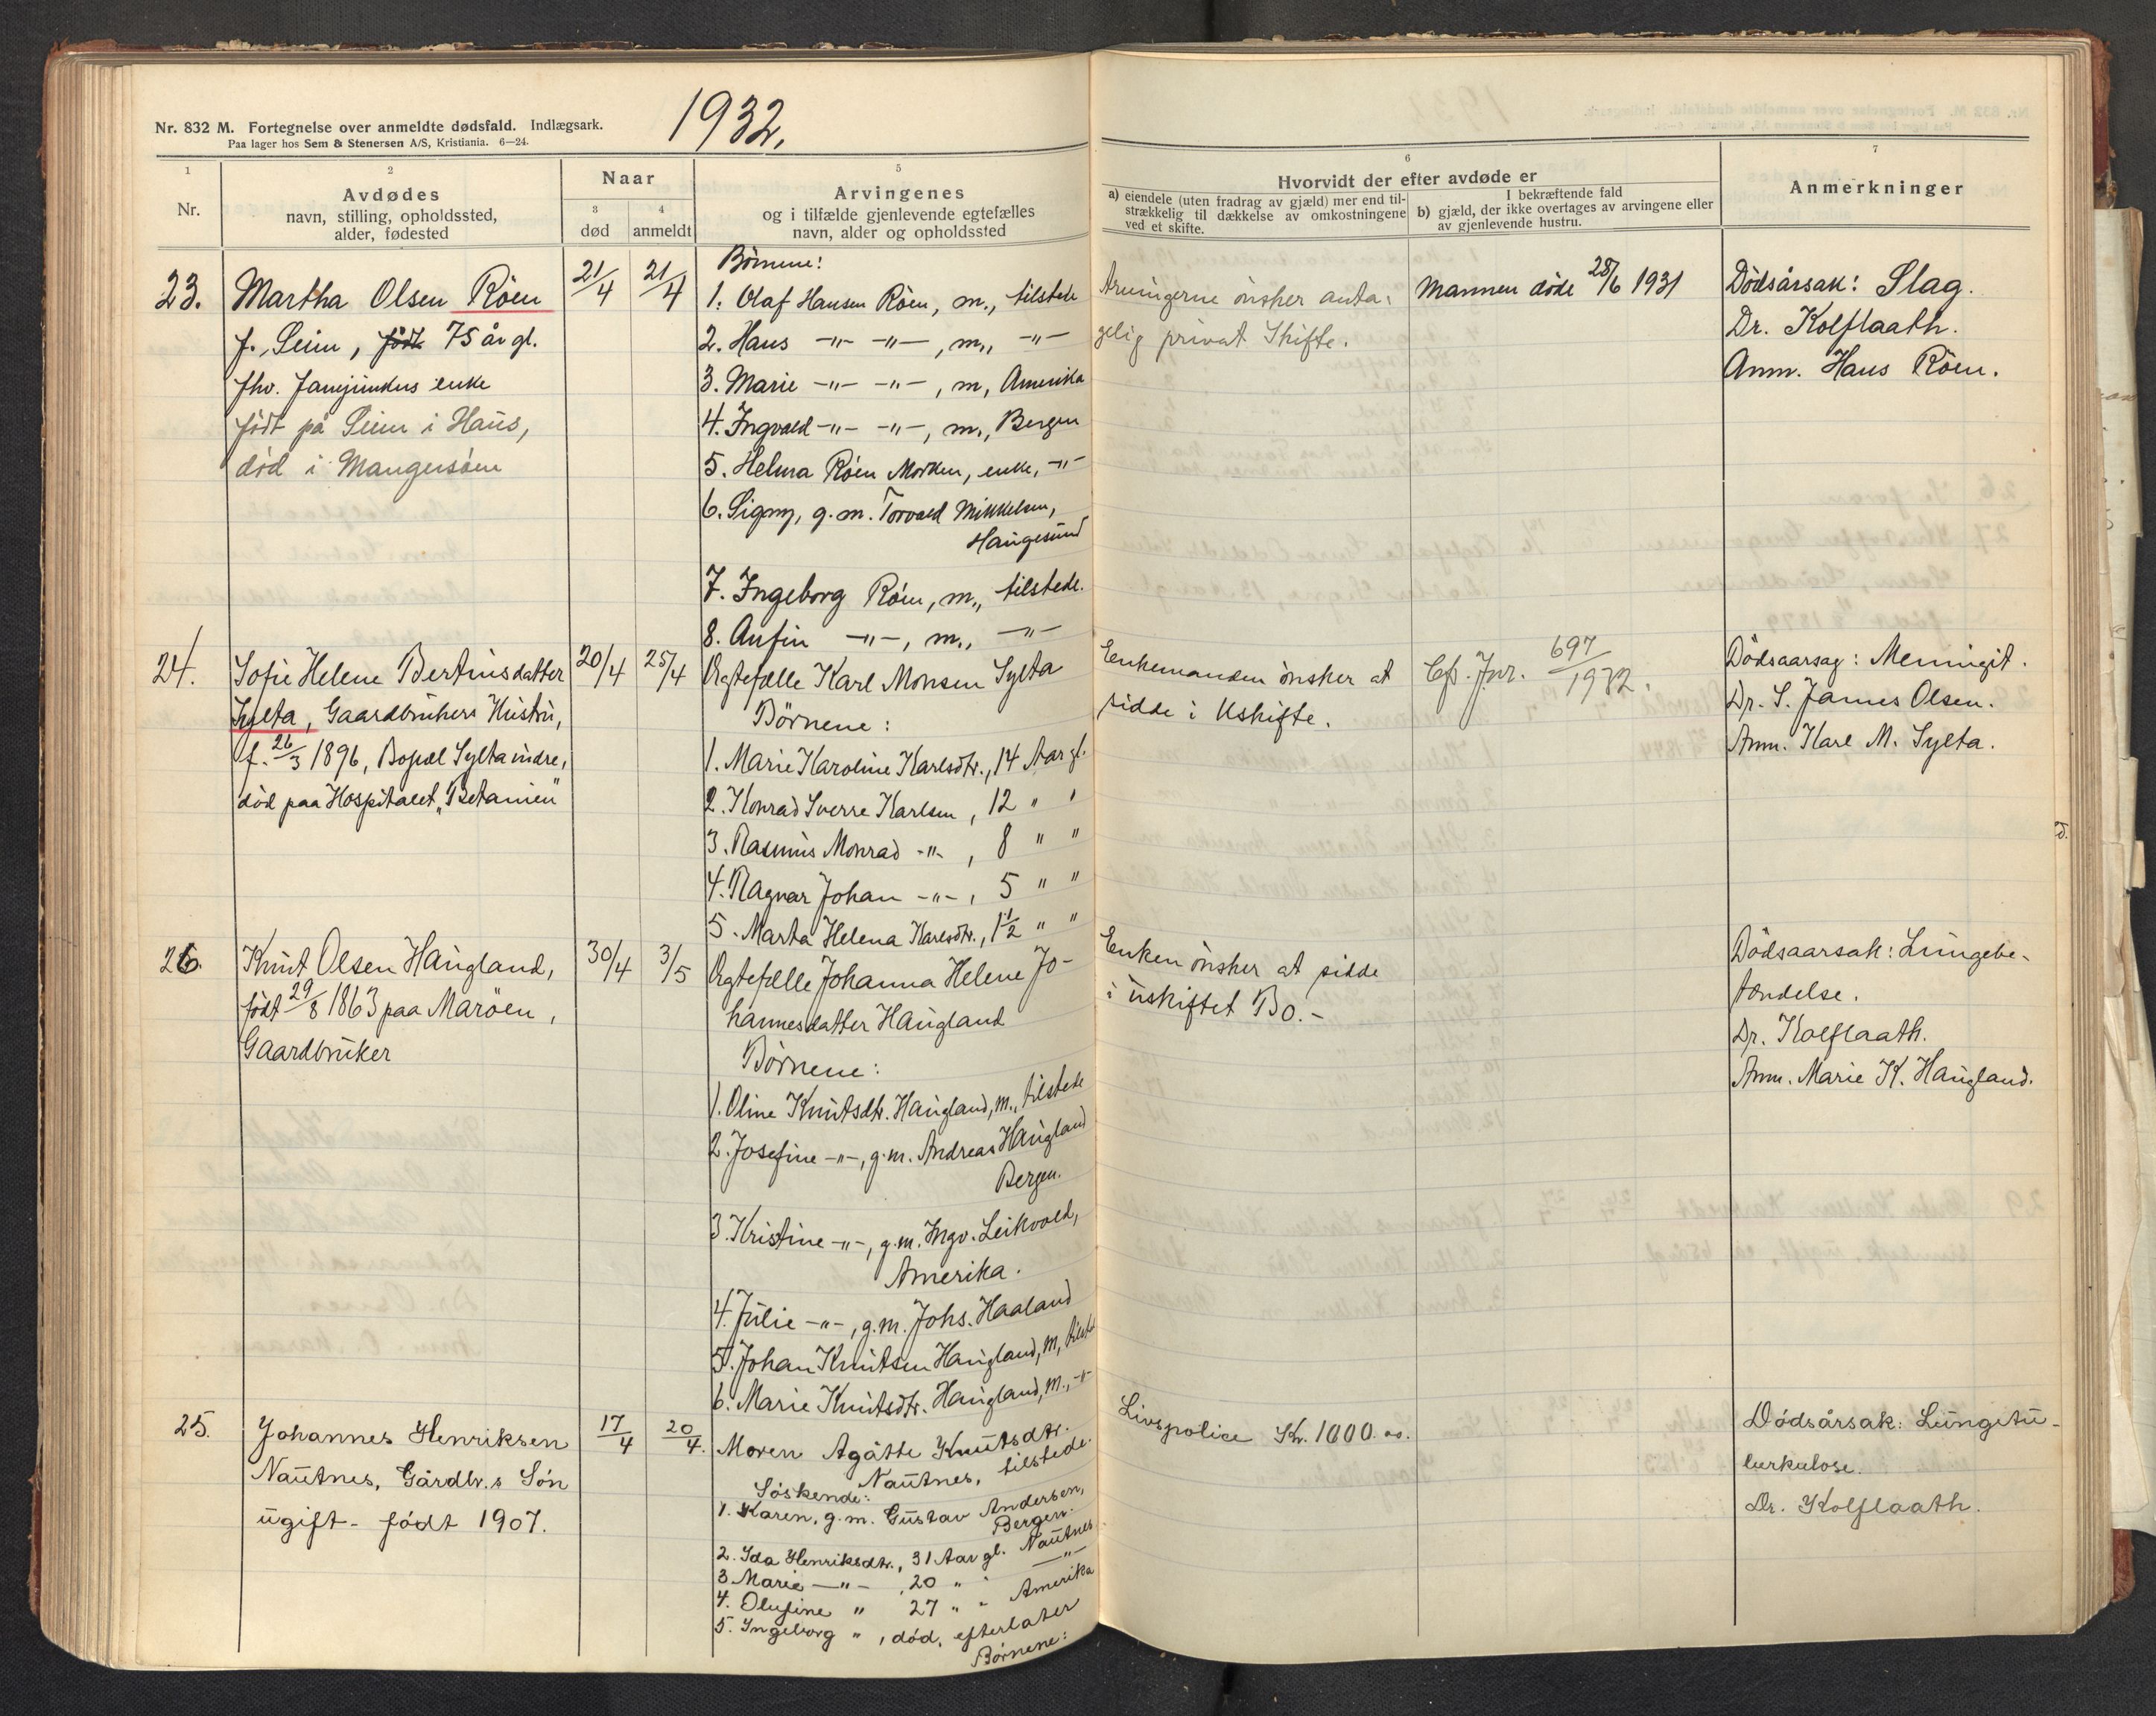 Nr. 832 M. Fortegnelse over anmeldte dødsfald. Indlægsark.
Paa lager hos Sem & Stenersen A/S, Kristiania. 6—24.
1932.
1
Nr.
2
Avdødes
navn, stilling, opholdssted,
alder, fødested
Naar
3
død
4
anmeldt
5
Arvingenes
og i tilfælde gjenlevende egtefælles
navn, alder og opholdssted
6
Hvorvidt der efter avdøde er
a) eiendele (uten fradrag av gjæld) mer end til-
strækkelig til dækkelse av omkostningene
ved et skifte.
I bekræftende fald
b) gjæld, der ikke overtages av arvingene eller
av gjenlevende hustru.
7
Anmerkninger
23.
Martha Olsen Röen
f. Seim, født 75 år gl.
fhv. enke
født på Seim i Haus,
død i Mangersöen
21/4
21/4
Börnene:
1. Olaf Hansen Röen, m., tilstede
2. Hans -"- -"-, m., -"-
3. Marie -"- -"-, m, Amerika
4. Ingvald -"- -"-, m., Bergen
5. Helma Röen Morken, enke, -"-
6. Signy, g.m. Torvald Mikkelsen,
Haugesund
7. Ingeborg Röen, m., tilstede.
8. Anfin -"-, m., -"-
Arvingerne önsker anta-
gelig privat Skifte.
Mannen döde 28/6 1931
Dödsårsak: Slag.
Dr. Kolflaath.
Anm. Hans Röen.
24.
Sofie Helene Bertinsdatter
Sylta, Gaardbrukers Hustru,
f. 26/3 1896, Bopæl Sylta indre,
död paa Hospitalet "Betanien"
20/4
25/4
Ægtefælle Karl Monsen Sylta
Börnene:
1. Marie Karoline Karlsdtr., 14 Aar gl.
2. Konrad Sverre Karlsen, 12 " "
3. Rasmus Monrad -"-, 8 " "
4. Ragnar Johan -"-, 5 " "
5. Marta Helena Karlsdtr., 1 1/2 " "
Enkemanden önsker at
sidde i Uskifte.
Cfr. Jnr. 697/1932.
Dödsaarsag: Meningit.
Dr. S. James Olsen.
Anm. Karl M. Sylta.
26.
Knut Olsen Haugland,
födt 29/8 1863 paa Maröen,
Gaardbruker
30/4
3/5
Ægtefælle Johanna Helene Jo-
hannesdatter Haugland
Börnene:
1. Oline Knutsdtr. Haugland, m., tilstede
2. Josefine -"-, g.m. Andreas Haugland
Bergen.
3. Kristine -"-, g.m. Ingv. Leikvold,
Amerika.
4. Julie -"-, g.m. Johs. Haaland
5. Johan Knutsen Haugland, m, tilstede
6. Marie Knutsdtr. Haugland, m., -"-
Enken önsker at sidde
i uskiftet Bo.-
Dödsaarsak: Lungebe-
tændelse.
Dr. Kolflaath.
Anm. Marie K. Haugland.
25.
Johannes Henriksen
Nautnes, Gårdbr.s Sön
ugift - födt 1907.
17/4
20/4.
Moren Agáthe Knutsdtr.
Nautnes, tilstede.
Söskende:
1. Karen, g.m. Gustav Andersen,
Bergen.
2. Ida Henriksdtr., 31 Aar gl. Nautnes
3. Marie -"-, 20 " " -"-
4. Olufine " 27 " " Amerika
5. Ingeborg ", död, efterlater
Börnene:
Livspolice Kr. 1000.00.
Dödsårsak: Lungetu-
berkulose.
Dr. Kolflaath.